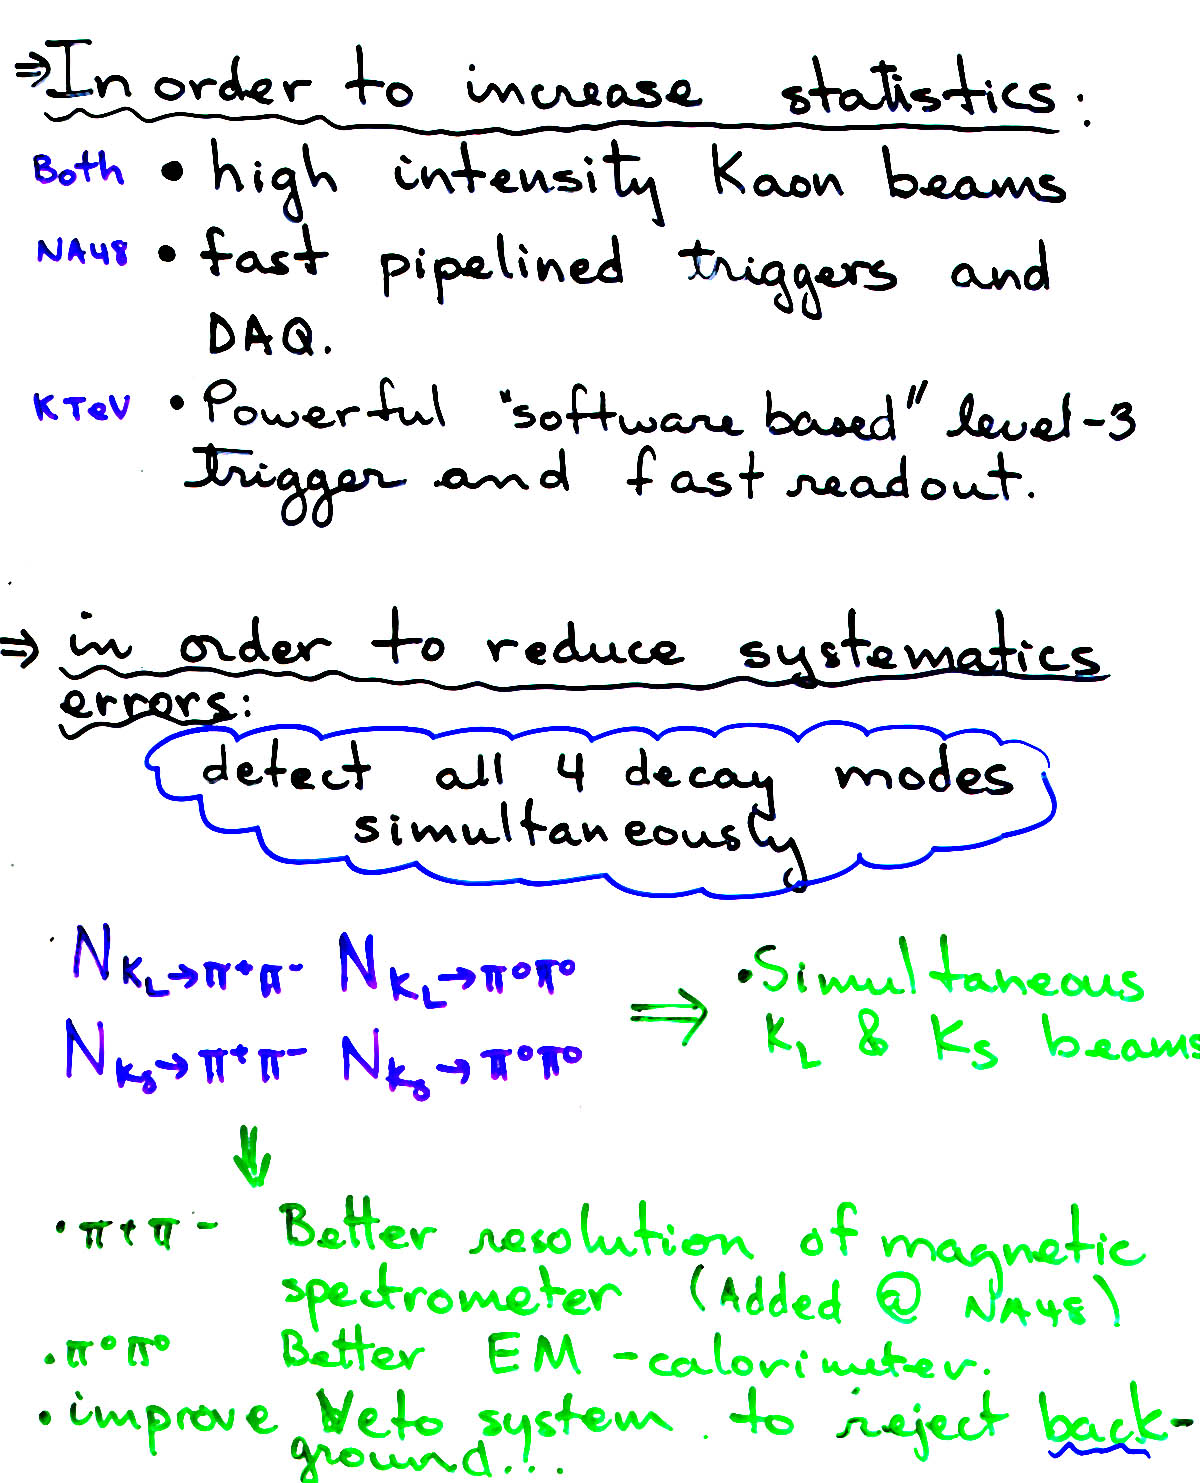 ⇒ In order to increase statistics:
Both • high intensity Kaon beams
NA48 • fast pipelined triggers and
DAQ.
KTeV • Powerful "software based" level-3
trigger and fast readout.
⇒ in order to reduce systematics
errors:
detect all 4 decay modes
simultaneously
N K_L→π⁺π⁻ N K_L→π⁰π⁰ ⇒ • Simultaneous
N K_S→π⁺π⁻ N K_S→π⁰π⁰ K_L & K_S beams
⇓
• π+π- Better resolution of magnetic
spectrometer (Added @ NA48)
• π⁰π⁰ Better EM-calorimeter.
• improve Veto system to reject back-
ground...